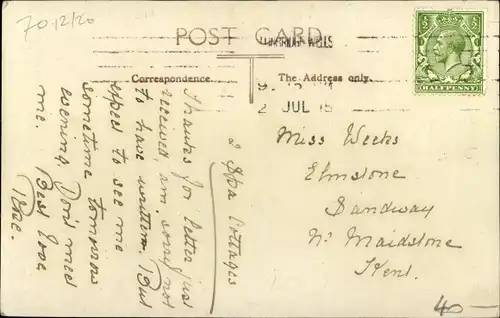 70.12/20
POST CARD
HALFPENNY
Correspondence.
The Address only.
2 JUL 15
2 Spa Cottages
Thanks for letter just
received am sorry not
to have written. But
expect to see me
sometime tomorrow
evening. Don't meet
me. Best love
Miss Weeks
Elmstone
Sandway
Nr Maidstone
Kent.
40 —